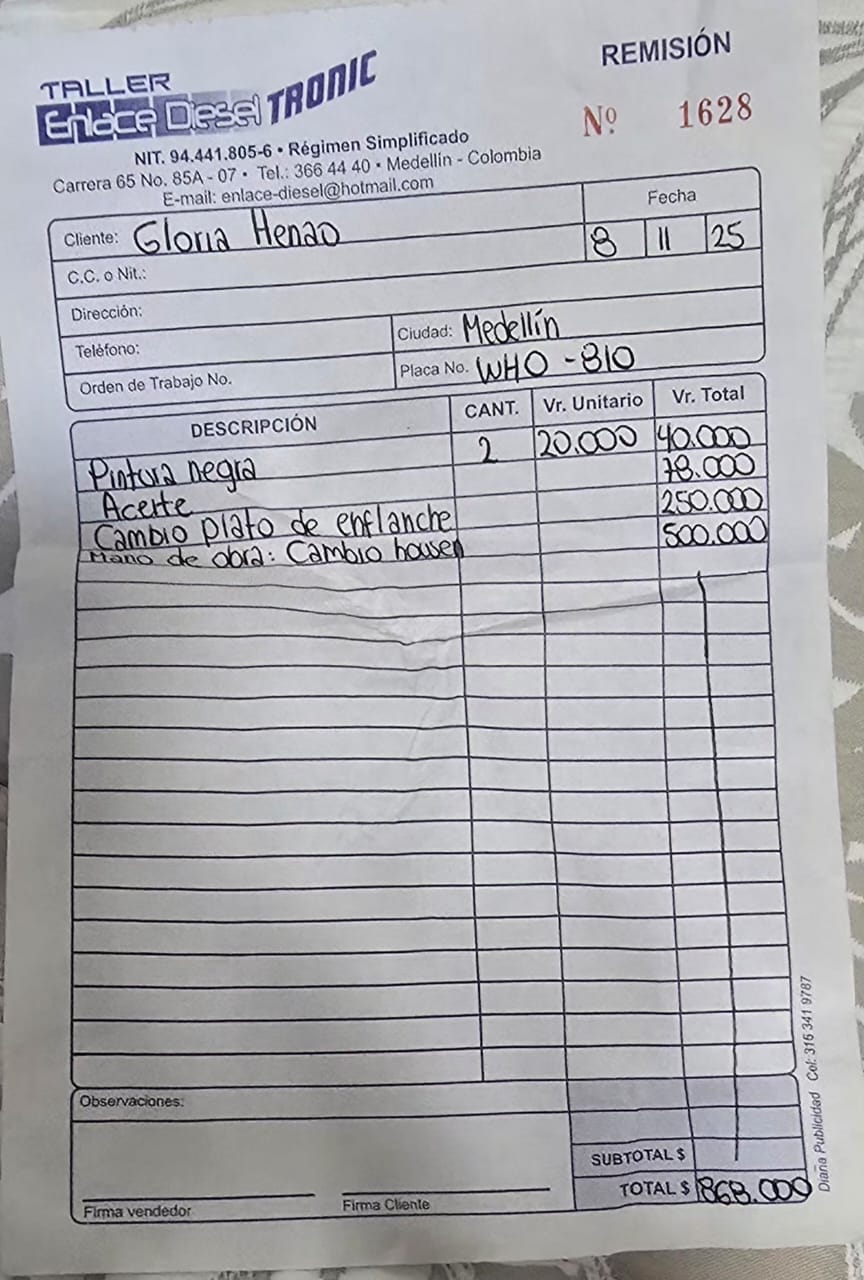 REMISIÓN
TALLER
Enlace Diesel TRONIC
Nº 1628
NIT. 94.441.805-6 • Régimen Simplificado
Carrera 65 No. 85A - 07 • Tel.: 366 44 40 • Medellín - Colombia
E-mail: enlace-diesel@hotmail.com
Cliente: Gloria Henao
Fecha
8 11 25
C.C. o Nit.:
Dirección:
Teléfono:
Ciudad: Medellín
Orden de Trabajo No.
Placa No. WHO - 810
DESCRIPCIÓN CANT. Vr. Unitario Vr. Total
Pintura negra 2 20.000 40.000
Aceite 78.000
Cambio plato de enflanche 250.000
Mano de obra: Cambio housen 500.000
Observaciones:
SUBTOTAL $
TOTAL $ 868.000
Firma vendedor
Firma Cliente
Diana Publicidad Cel: 316 341 9787